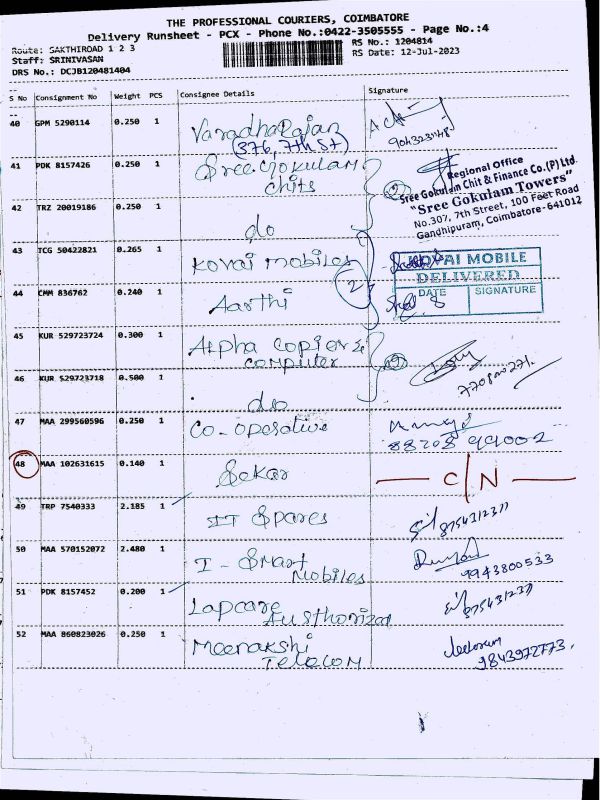 THE PROFESSIONAL COURIERS, COIMBATORE
Delivery Runsheet - PCX - Phone No.:0422-3505555 - Page No.:4
Route: SAKTHIROAD 1 2 3
RS No.: 1204814
Staff: SRINIVASAN
RS Date: 12-Jul-2023
DRS No.: DCJB120481404
S No Consignment No Weight PCS Consignee Details Signature
40 GPM 5290114 0.250 1 Varadharajan
(376, 7th St)
41 PDK 8157426 0.250 1 Sree Gokulam
chits
Regional Office
Sree Gokulam Chit & Finance Co.(P) Ltd.
"Sree Gokulam Towers"
No.307, 7th Street, 100 Feet Road
Gandhipuram, Coimbatore-641012
42 TRZ 20019186 0.250 1 do
43 TCG 50422821 0.265 1 Kovai mobiles
KOVAI MOBILE
DELIVERED
DATE SIGNATURE
44 CMM 836762 0.240 1 Aarthi
45 KUR 529723724 0.300 1 Alpha copier &
computer
46 KUR 529723718 0.500 1 do
47 MAA 299560596 0.250 1 Co-operative
48 MAA 102631615 0.140 1 Sekar C/N
49 TRP 7540333 2.185 1 IT Spares
50 MAA 570152072 2.480 1 I-Smart
Mobiles
9943800533
51 PDK 8157452 0.200 1 Lapcare
Austhorized
52 MAA 860823026 0.250 1 Meenakshi
Telecom
9843972773.